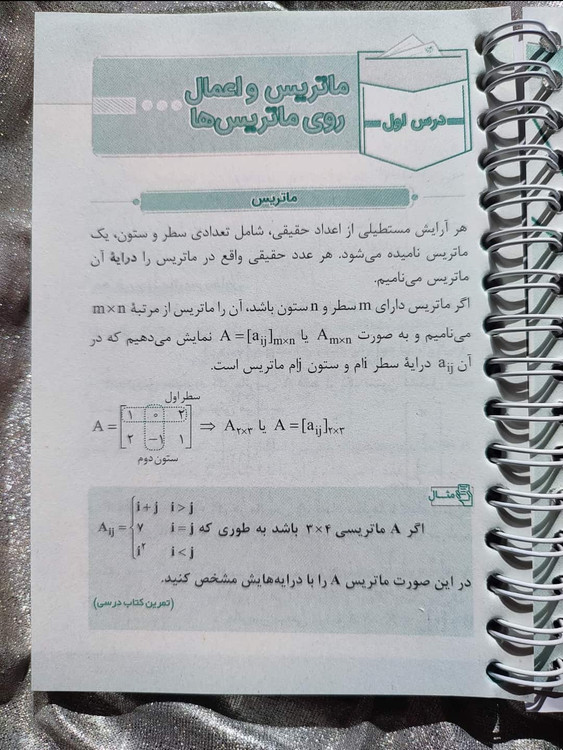 درس اول
ماتریس و اعمال
روی ماتریس‌ها
ماتریس
هر آرایش مستطیلی از اعداد حقیقی، شامل تعدادی سطر و ستون، یک
ماتریس نامیده می‌شود. هر عدد حقیقی واقع در ماتریس را درایهٔ آن
ماتریس می‌نامیم.
اگر ماتریس دارای m سطر و n ستون باشد، آن را ماتریس از مرتبهٔ m×n
می‌نامیم و به صورت Aₘₓₙ یا A=[aᵢⱼ]ₘₓₙ نمایش می‌دهیم که در
آن aᵢⱼ درایهٔ سطر iام و ستون jام ماتریس است.
سطر اول
A = [۱ ۰ ۲
۲ −۱ ۱] ⇒ A₂ₓ₃ یا A=[aᵢⱼ]₂ₓ₃
ستون دوم
مثال
i+j i>j
اگر A ماتریسی ۳×۴ باشد به طوری که Aᵢⱼ = { ۷ i=j
i² i<j
در این صورت ماتریس A را با درایه‌هایش مشخص کنید.
(تمرین کتاب درسی)